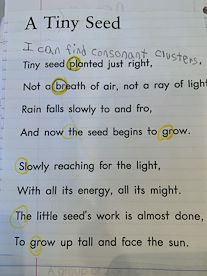 A Tiny Seed
I can find consonant clusters.
Tiny seed planted just right,
Not a breath of air, not a ray of light
Rain falls slowly to and fro,
And now the seed begins to grow.
Slowly reaching for the light,
With all its energy, all its might.
The little seed's work is almost done,
To grow up tall and face the sun.